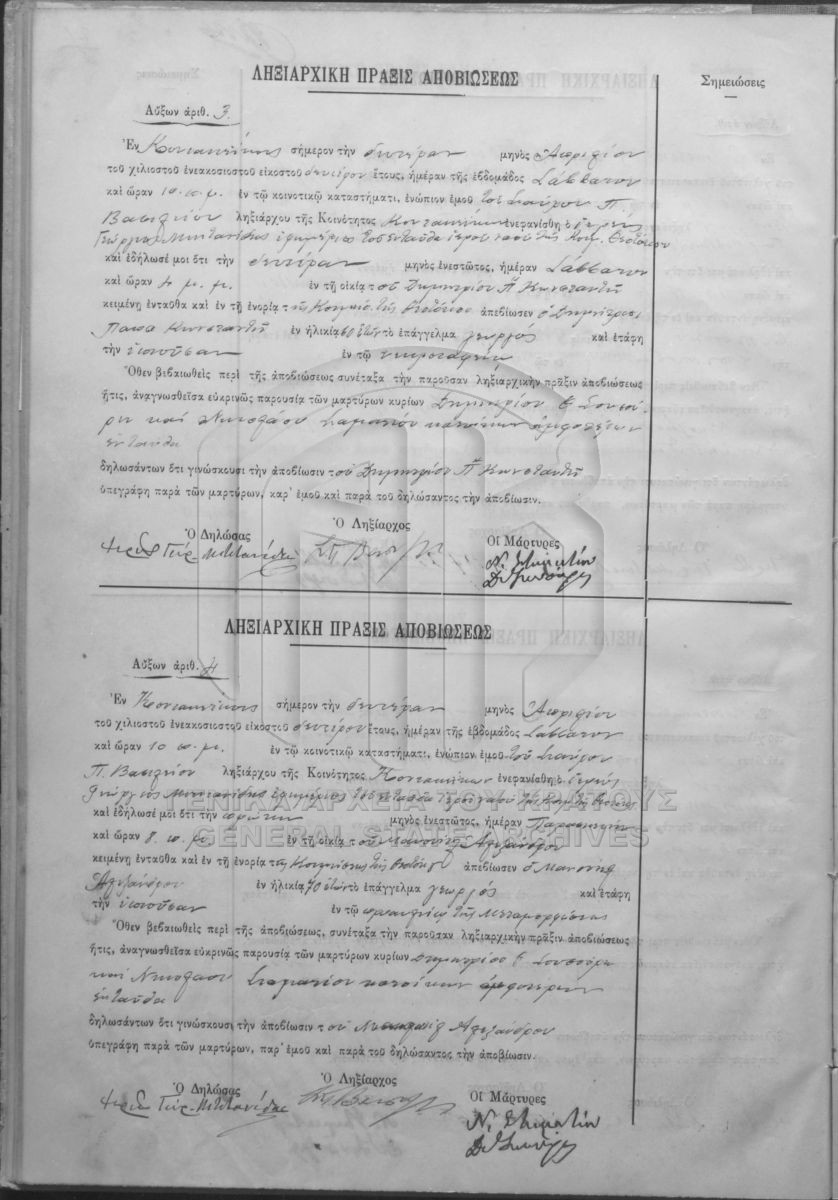 ΛΗΞΙΑΡΧΙΚΗ ΠΡΑΞΙΣ ΑΠΟΒΙΩΣΕΩΣ
Σημειώσεις
Αὔξων ἀριθ. 3.
Ἐν σήμερον τὴν δευτέραν μηνὸς Ἀπριλίου
τοῦ χιλιοστοῦ ἐνεακοσιοστοῦ εἰκοστοῦ δευτέρου ἔτους, ἡμέραν τῆς ἑβδομάδος Σάββατον
καὶ ὥραν 10 π.μ. ἐν τῷ κοινοτικῷ καταστήματι, ἐνώπιον ἐμοῦ τοῦ Σταύρου Π.
Βασιλείου ληξιάρχου τῆς Κοινότητος ἐνεφανίσθη ὁ ἱερεὺς
Γεώργιος ἐφημέριος τοῦ ἐνταῦθα ἱεροῦ ναοῦ τῆς Κοιμ. Θεοτόκου
καὶ ἐδήλωσέ μοι ὅτι τὴν δευτέραν μηνὸς ἐνεστῶτος, ἡμέραν Σάββατον
καὶ ὥραν 4 μ.μ. ἐν τῇ οἰκίᾳ τοῦ Δημητρίου Π Κωνσταντῆ
κειμένῃ ἐνταῦθα καὶ ἐν τῇ ἐνορίᾳ τῆς Κοιμήσ. τῆς Θεοτόκου ἀπεβίωσεν ὁ Δημήτριος
Παπα Κωνσταντῆ ἐν ἡλικίᾳ 60 ἐτῶν τὸ ἐπάγγελμα γεωργός καὶ ἐτάφη
τὴν ἰδίαν ἐν τῷ νεκροταφείῳ
Ὅθεν βεβαιωθεὶς περὶ τῆς ἀποβιώσεως συνέταξα τὴν παροῦσαν ληξιαρχικὴν πρᾶξιν ἀποβιώσεως
ἥτις, ἀναγνωσθεῖσα εὐκρινῶς παρουσίᾳ τῶν μαρτύρων κυρίων Δημητρίου
καὶ Νικολάου Σταματίου κατοίκων ἀμφοτέρων
ἐνταῦθα
δηλωσάντων ὅτι γινώσκουσι τὴν ἀποβίωσιν τοῦ Δημητρίου Π Κωνσταντῆ
ὑπεγράφη παρὰ τῶν μαρτύρων, παρ' ἐμοῦ καὶ παρὰ τοῦ δηλώσαντος τὴν ἀποβίωσιν.
Ὁ Δηλώσας
Ὁ Ληξίαρχος
Οἱ Μάρτυρες
Ν. Σταματίου
ΛΗΞΙΑΡΧΙΚΗ ΠΡΑΞΙΣ ΑΠΟΒΙΩΣΕΩΣ
Αὔξων ἀριθ. 4
Ἐν σήμερον τὴν δευτέραν μηνὸς Ἀπριλίου
τοῦ χιλιοστοῦ ἐνεακοσιοστοῦ εἰκοστοῦ δευτέρου ἔτους, ἡμέραν τῆς ἑβδομάδος Σάββατον
καὶ ὥραν 10 π.μ. ἐν τῷ κοινοτικῷ καταστήματι, ἐνώπιον ἐμοῦ τοῦ Σταύρου
Π. Βασιλείου ληξιάρχου τῆς Κοινότητος ἐνεφανίσθη ὁ ἱερεύς
Γεώργιος ἐφημέριος τοῦ ἐνταῦθα ἱεροῦ ναοῦ τῆς Κοιμ. τῆς Θεοτόκου
ΓΕΝΙΚΑ ΑΡΧΕΙΑ ΤΟΥ ΚΡΑΤΟΥΣ
καὶ ἐδήλωσέ μοι ὅτι τὴν πρώτην μηνὸς ἐνεστῶτος, ἡμέραν Παρασκευὴν
GENERAL STATE ARCHIVES
καὶ ὥραν 8 π.μ. ἐν τῇ οἰκίᾳ τοῦ Ἀλεξάνδρου
κειμένῃ ἐνταῦθα καὶ ἐν τῇ ἐνορίᾳ τῆς Κοιμήσεως τῆς Θεοτόκου ἀπεβίωσεν ὁ
Ἀλεξάνδρου ἐν ἡλικίᾳ 70 ἐτῶν τὸ ἐπάγγελμα γεωργός καὶ ἐτάφη
τὴν ἰδίαν ἐν τῷ τῆς Μεταμορφώσεως
Ὅθεν βεβαιωθεὶς περὶ τῆς ἀποβιώσεως, συνέταξα τὴν παροῦσαν ληξιαρχικὴν πρᾶξιν ἀποβιώσεως
ἥτις, ἀναγνωσθεῖσα εὐκρινῶς παρουσίᾳ τῶν μαρτύρων κυρίων Δημητρίου
καὶ Νικολάου Σταματίου κατοίκων ἀμφοτέρων
ἐνταῦθα
δηλωσάντων ὅτι γινώσκουσι τὴν ἀποβίωσιν τοῦ Ἀλεξάνδρου
ὑπεγράφη παρὰ τῶν μαρτύρων, παρ' ἐμοῦ καὶ παρὰ τοῦ δηλώσαντος τὴν ἀποβίωσιν.
Ὁ Δηλώσας
Ὁ Ληξίαρχος
Οἱ Μάρτυρες
Ν. Σταματίου